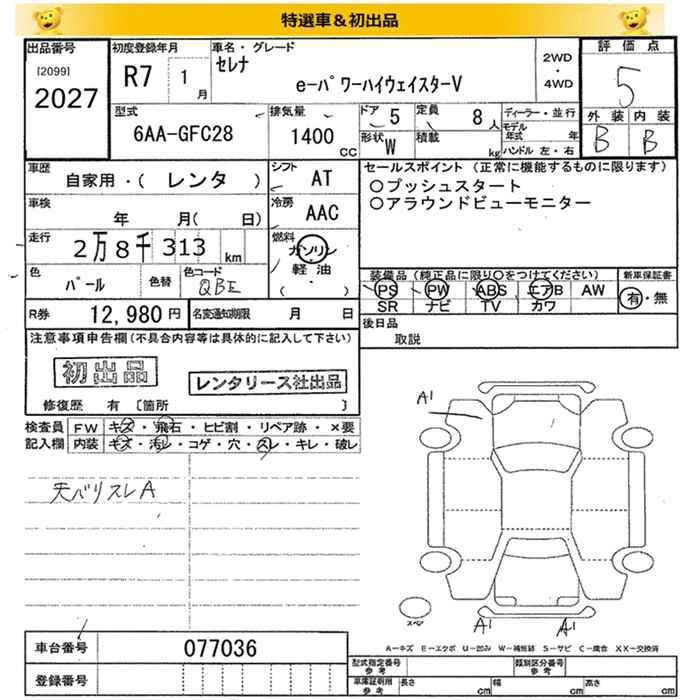 特選車＆初出品
出品番号
[2099]
2027
初度登録年月
R7 1月
車名・グレード
セレナ
e-パワーハイウェイスターV
2WD
・
4WD
評価点
5
外装 内装
B B
型式
6AA-GFC28
排気量
1400 CC
ドア 5
定員 8人
形状 W
積載 kg
ディーラー・並行
モデル年式 年
ハンドル 左・右
車歴
自家用・( レンタ )
シフト AT
車検
年 月( 日)
冷房 AAC
走行
2万8千313 km
燃料
ガソリン
軽油
( ・ )
色
パール
色替
色コード
QBE
セールスポイント(正常に機能するものに限ります)
○プッシュスタート
○アラウンドビューモニター
装備品(純正品に限り○をつけてください)
新車保証書
PS PW ABS エアB AW
SR ナビ TV カワ
有・無
R券 12,980円
名変通知期限 月 日
後日品
取説
注意事項申告欄(不具合内容等は具体的に記入して下さい)
初出品
レンタリース社出品
修復歴 有 〔箇所 〕
検査員
記入欄
FW キズ・飛石・ヒビ割・リペア跡・×要
内装 キズ・汚レ・コゲ・穴・スレ・キレ・破レ
天バリスレA
A1
スペア
A1 A1
A-キズ E-エクボ U-凹み W-補修跡 S-サビ C-腐食 XX-交換済
車台番号 077036
登録番号
型式指定番号
参考
類別区分番号
参考
車庫証明用
参考
長さ cm 幅 cm 高さ cm